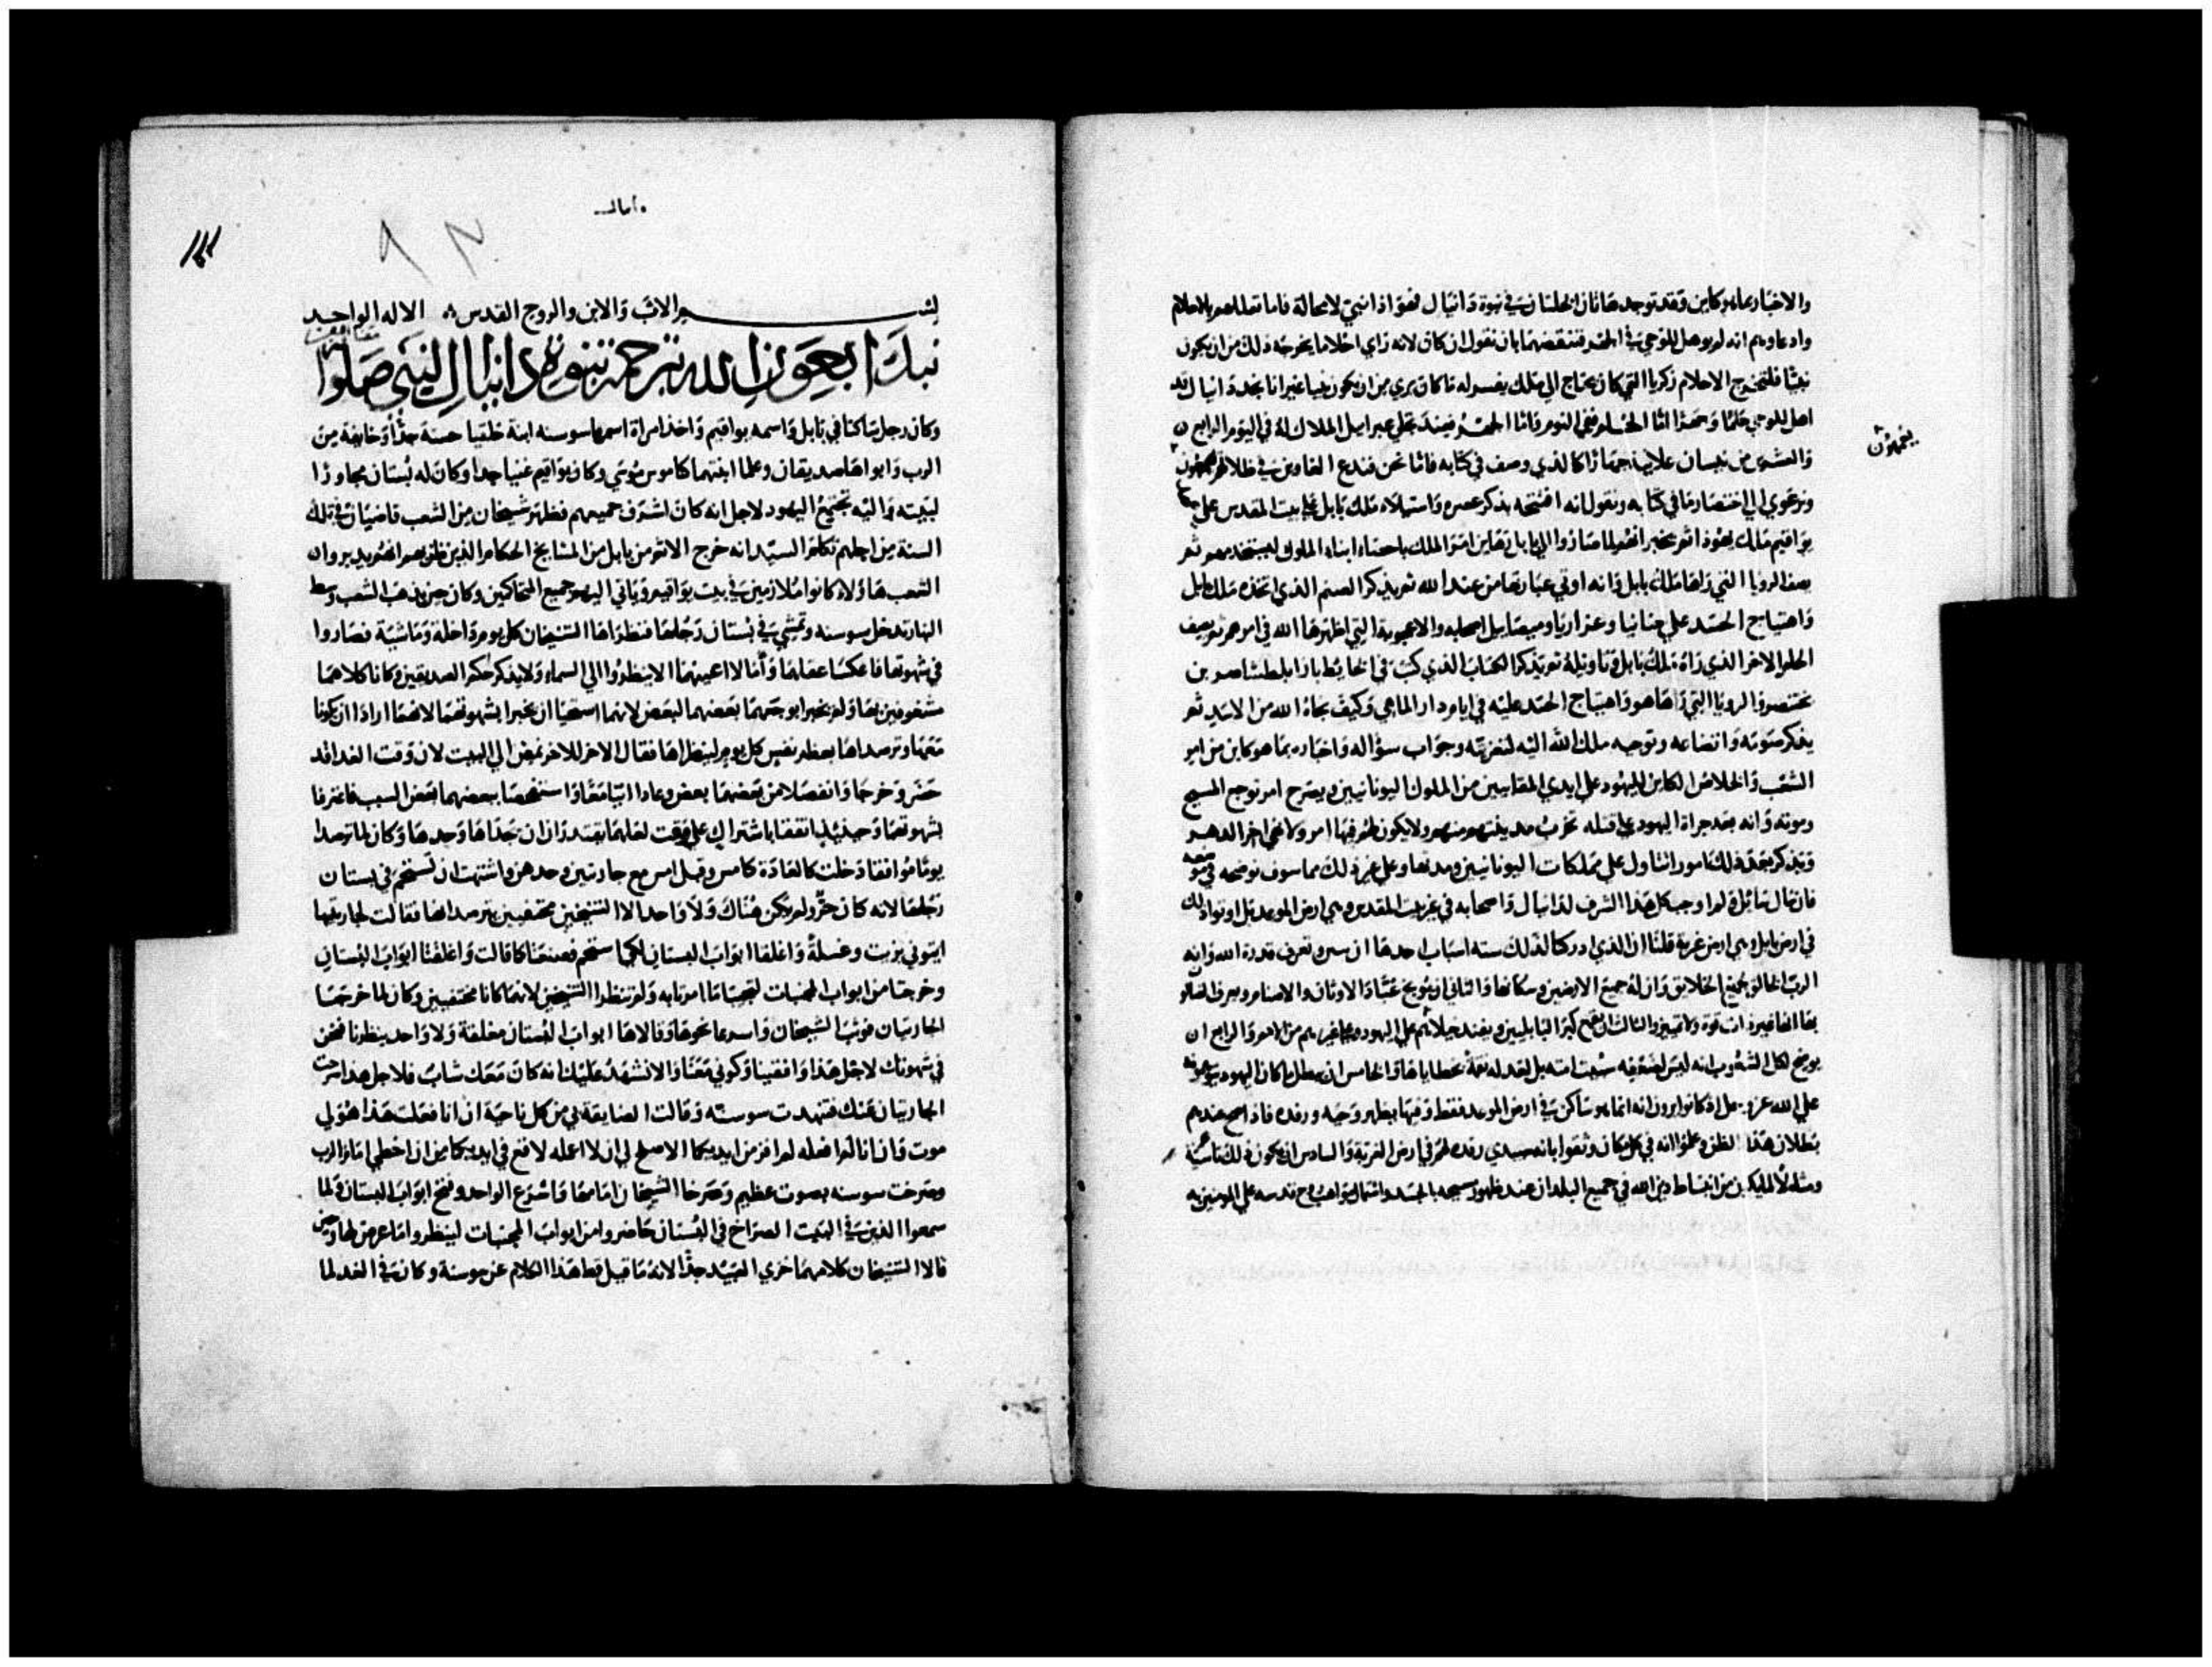 والاخبار بما هو كاين وقد توجد هاتان الخلتان في نبوة دانيال فهو اذا نبي لا محالة فاما تعللهم بالاحلام
وادعاوهم انه لم يوهل للوحي في الجهر فننقضهما بان نقول ان كان لانه راي احلاما يخرجه ذلك من ان يكون
نبيا فلتخرج الاحلام زكريا التي كان محتاج الي ملك يفسر له ما كان يري من ان يكون نبيا غير انا نجد دانيال قد
اهل للوحي حلما وجهرا اما الحلم ففي النوم واما الجهر فعند تجلي غبراييل الملاك له في اليوم الرابع
والعشرين من نيسان علانية جهارا كالذي وصف في كتابه فاما نحن فندع الغاوين في ظلالتهم
يغمهون
ونرعوي الي اختصار ما في كتابه ونقول انه افتتحه بذكر عصره واستيلاء ملك بابل علي بيت المقدس علي
يواقيم ملك يهوذا ثم يخبر انهم لما صاروا الي بابل تقاين امر الملك باحصاء ابناء الملوك ليستخدمهم ثم
يصف الرويا التي راها ملك بابل وانه اوتي عبارتها من عند الله ثم يذكر الصنم الذي اتخذه ملك بابل
واهتياج الحسد علي حنانيا وعزاريا وميصاييل اصحابه والاعجوبة التي اظهرها الله في امرهم ثم يصف
الحلم الاخر الذي راه ملك بابل وتاويله ثم يذكر الكتاب الذي كتب في الحايط بازا بلطشاصر بن
بختنصر والرويا التي راها هو واهتياج الحسد عليه في ايام دار الماهي وكيف نجاه الله من الاسد ثم
يذكر صومه واتضاعه وتوجيه ملك الله اليه لتعزيته وجواب سؤاله واخباره بما هو كاين من امر
الشعب والخلاص الكاين لليهود علي ايدي المقابيين من الملوك اليونانيين ويصرح امر نوجع المسيح
وموته وانه بعد جراة اليهود علي قتله تخرب مدينتهم منهم ولا يكون لهم فيها امر ولا نهي اخر الدهر
ويذكر بعد ذلك امورا تتاول علي مملكات اليونانيين ومدتها وعلي غير ذلك مما سوف نوضحه في موضعه
فان قال قائل لم اوجب كل هذا الشرف لدانيال واصحابه في غير بيت المقدس وهي ارض الموعد بل اوتوا ذلك
في ارض بابل وهي ارض غربة قلنا ان الذي ادركنا لذلك سته اسباب احدها ان يسر وتعرف قدرة الله وانه
الرب الخالق لجميع الخلايق وان له جميع الارضين وسكانها والثاني ان يوبخ عباد الاوثان والاصنام ويعرف
بها انها غير ذات قوة ولا تمييز والثالث ان يفضح كبر البابليين ويفند خيلاهم علي اليهود وعلي غيرهم من الامم والرابع ان
يوضح لكل الشعوب انه ليس لضعفه سبيت امته بل لقد له نقمة بخطاياها والخامس ان يبطل ما كان اليهود
علي الله عز وجل اذ كانوا يرون انه انما هو ساكن في ارض الموعد فقط وفيها يظهر وحيه ورفده فاذا صح عندهم
بطلان هذا الظن وعلموا انه في كل مكان وثقوا بانه سيدي رفده لهم في ارض الغربة والسادس ان يكون ذلك تاسية
ومثله لا للملك بن من انبساط دين الله في جميع البلدان عند ظهور مسيحه بالجسد واشتمال مواهب روح قدسه علي المومنين به
دانيال
بسم الاب والابن والروح القدس الاله الواحد
نبتدا بعون الله بترجمة نبوة دانيال النبي صلواته
وكان رجل ساكنا في بابل واسمه يواقيم واخذ امراة اسمها سوسنه ابنة خلقيا حسنة جدا وخايفة من
الرب وابواها صديقان وعلما ابنتهما كناموس موسي وكان يواقيم غنيا جدا وكان له بستان مجاورا
لبيته واليه تجتمع اليهود لاجل انه كان اشرف جميعهم فظهر شيخان من الشعب قاضيان في تلك
السنة من اجلهم تكلم السيد انه خرج الاثم من بابل من المشايخ الحكام الذين ظن بهم انهم يدبروان
الشعب هاؤلاء كانوا ملازمين في بيت يواقيم وياتي اليهم جميع المتحاكمين وكان حين يذهب الشعب وسط
النهار تدخل سوسنه وتمشي في بستان رجلها فنظراها الشيخان كل يوم داخله وماشية فصاروا
في شهوتها فاعكسا عقلهما وامالا اعينهما الا ينظروا الي السماء ولا يذكر حكم الصديقين وكانا كلاهما
مشغوفين بها ولم يخبرا بوجعهما بعضهما لبعض لانهما استحيا ان يخبرا بشهوتهما لانهما ارادا ان يكونا
معها وترصداها بعظم نفس كل يوم لينظراها فقال الاخر للاخر نمضي الي البيت لان وقت الغدا قد
حضر وخرجا وانفصلا من بعضهما بعض وعادا اتيا معا واستفحصا بعضهما بعض السبب فاعترفا
بشهوتهما وحينئذ اتفقا باشتراك علي وقت لعلهما يقتدران ان يجداها وحدها وكان لما ترصدا
يوما موافقا دخلت كالعادة كامس وقبل امس مع جاريتين وحدهن واشتهت ان تستحم في بستان
رجلها لانه كان حر ولم يكن هناك ولا واحد الا الشيخين مختفيين يترصدانها فقالت لجاريتيها
ايتوني بزيت وغسلة واغلقا ابواب البستان لكيما استحم فصنعتا كما قالت واغلقتا ابواب البستان
وخرجتا من ابواب المجنبات لتجيبا ما امرتا به ولم تنظرا الشيخين لانهما كانا مختفيين وكان لما خرجتا
الجاريتان فوثبا الشيخان واسرعا نحوها وقالا ها ابواب البستان مغلقة ولا واحد ينظرنا فنحن
في شهوتك لاجل هذا وافقينا وكوني معنا والا نشهد عليك انه كان معك شاب فلاجل هذا اخرجت
الجاريتان عنك فتنهدت سوسنه وقالت الضايقة بي من كل ناحية ان انا فعلت هذا هو لي
موت وان انا لم افعله لم افر من ايديكما الاصلح لي ان لا اعمله لاقع في ايديكما من ان اخطي امام الرب
وصرخت سوسنه بصوت عظيم وصرخا الشيخان امامها واسرع الواحد وفتح ابواب البستان ولما
سمعوا الذين في البيت الصراخ في البستان حاضروا من ابواب المجنبات لينظروا ما عرض لها وحين
قالا الشيخان كلامهما خزي العبيد جدا لانه ما قيل قط هذا الكلام عن سوسنة وكان في الغد لما